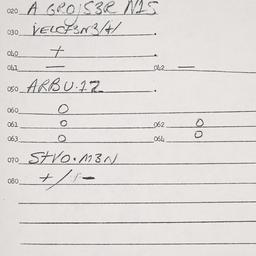 020 A GRO/S3R N1S
030 .
040 +
041 — 042 —
050 ARBU.12 .
060 O
061 O 062 O
063 O 064 O
070 S+VO.M3N
080 +/+-